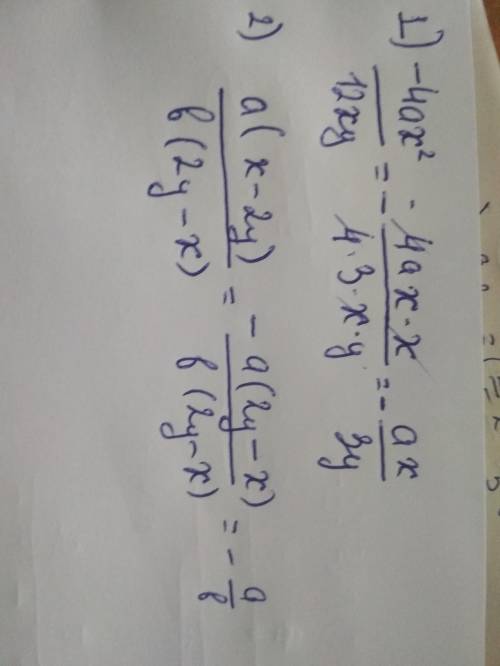 1) -4ax² / 12xy = - 4ax·x / 4·3·x·y = - ax / 3y
2) a(x-2y) / в(2y-x) = - a(2y-x) / в(2y-x) = - a / в